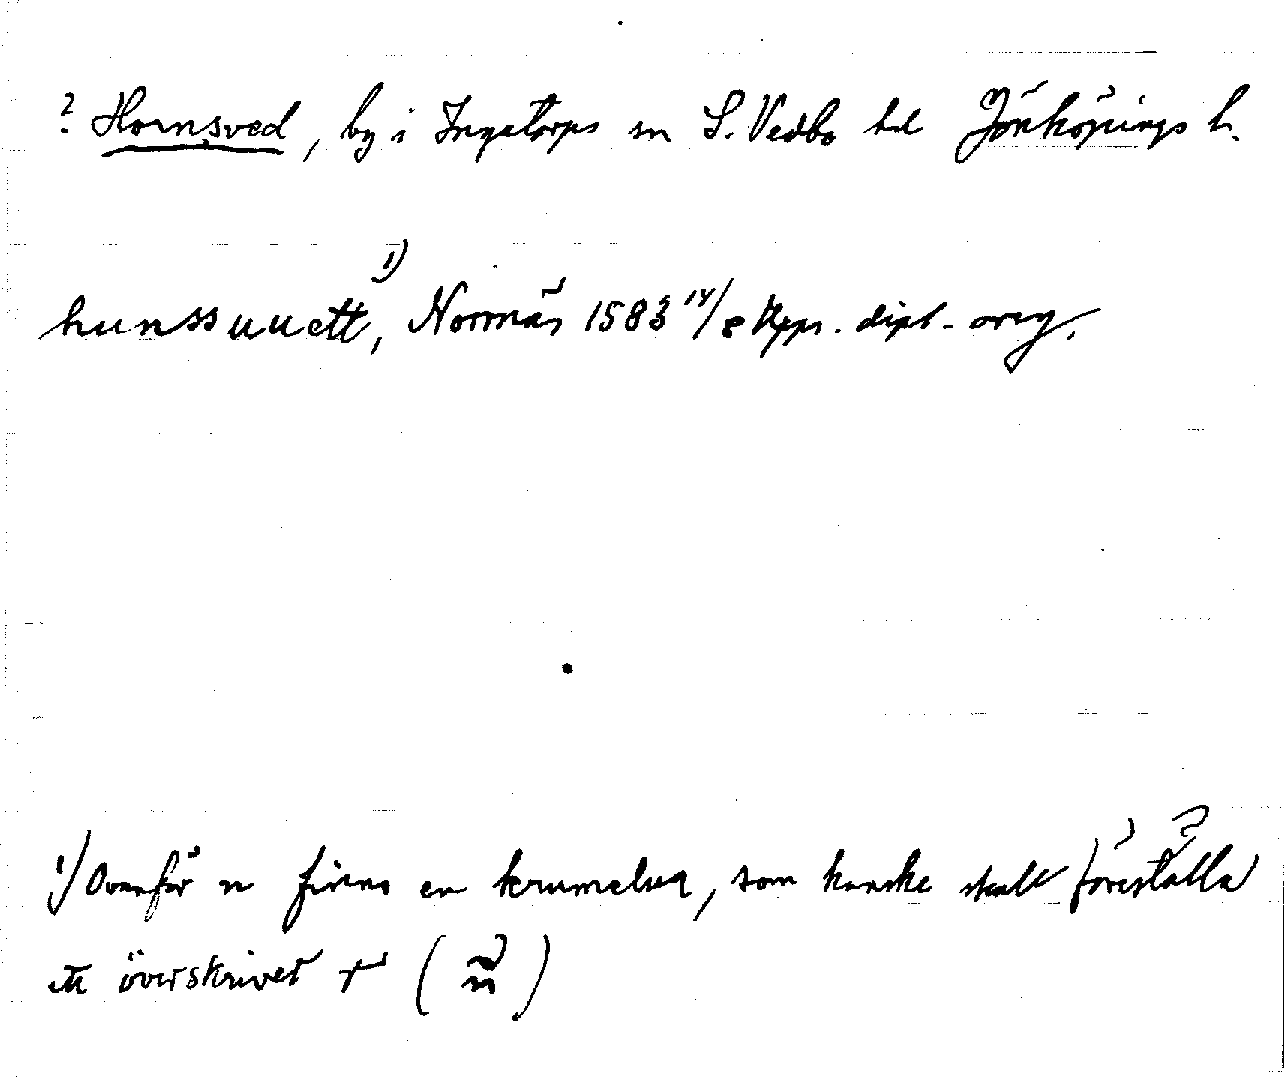 ? Hornsved, by i Ingatorps sn S. Vedbo hd Jönköpings l.
hunssuuett,¹⁾ Normäs 1583 14/8 Upps. dipl. orig.
¹⁾ Ovanför n finns en krumelur, som kanske skall föreställa
ett överskrivet r (n)